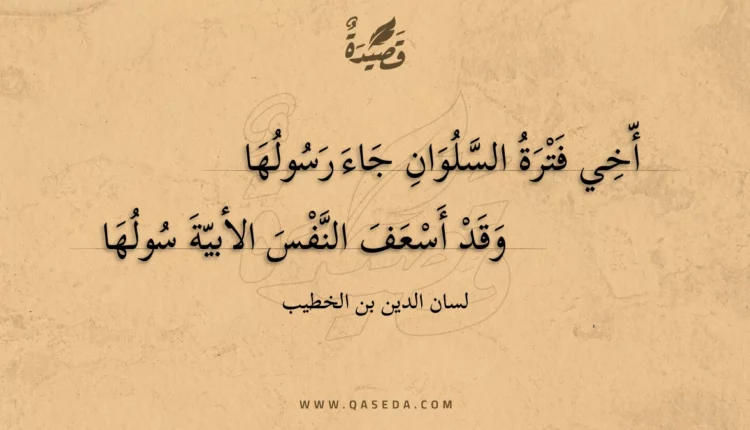 قَصِيْدَةٌ
أُّخِي فَتْرَةُ السَّلُوَانِ جَاءَ رَسُولُهَا
وَقَدْ أَسْعَفَ النَّفْسَ الأبيّةَ سُولُهَا
لسان الدين بن الخطيب
WWW.QASEDA.COM